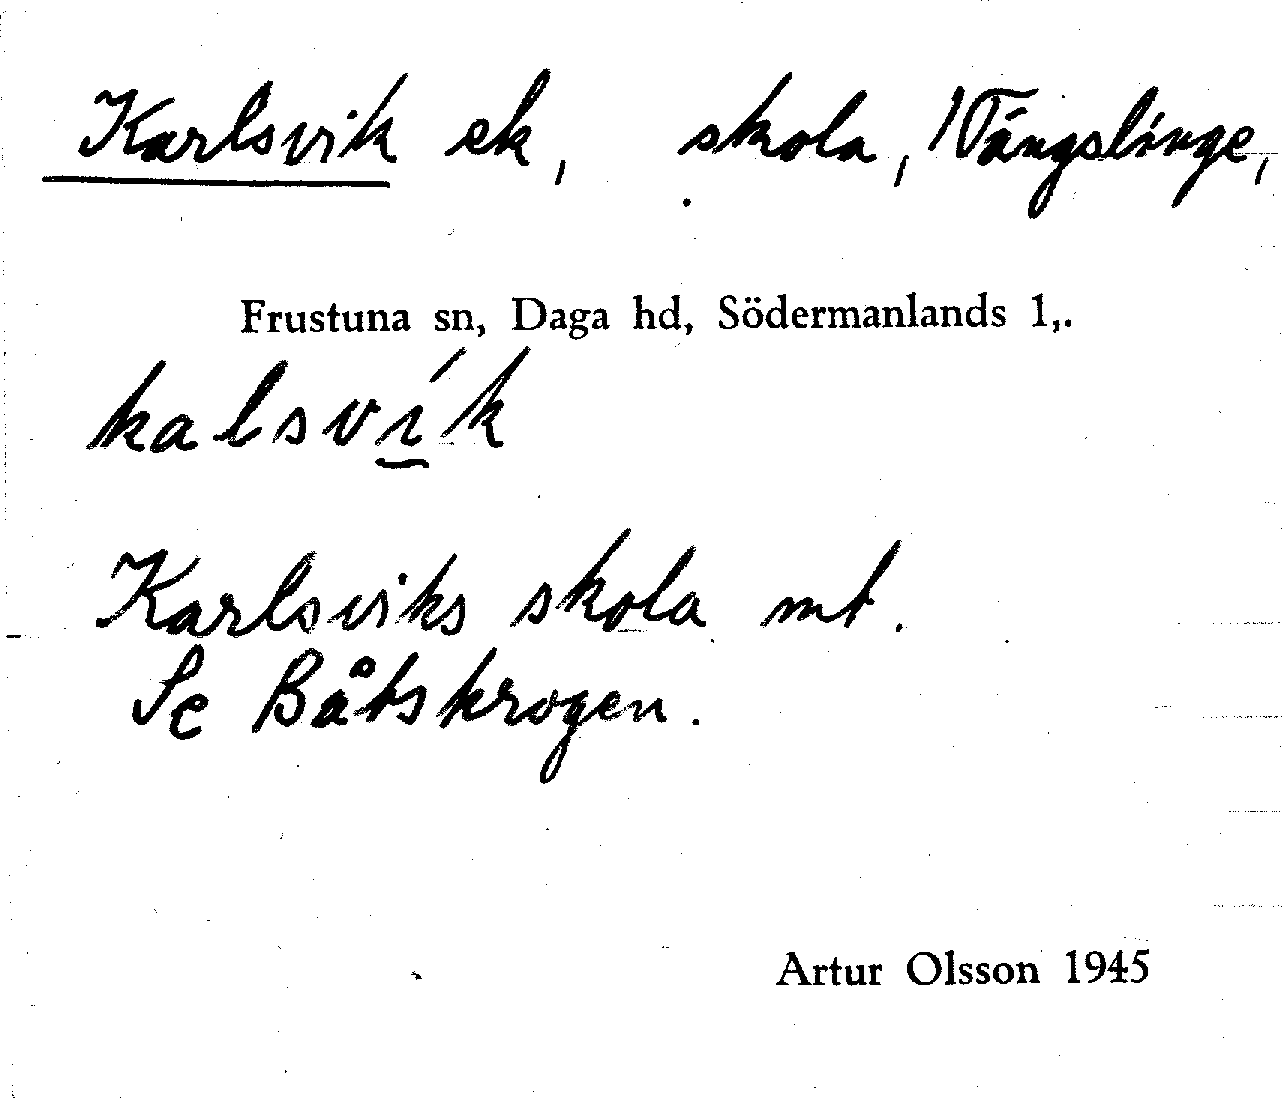 Karlsvik ek, skola, 1/2 Vängslinge,
Frustuna sn, Daga hd, Södermanlands l,.
kalsvík
Karlsviks skola mt.
Se Båtskrogen.
Artur Olsson 1945